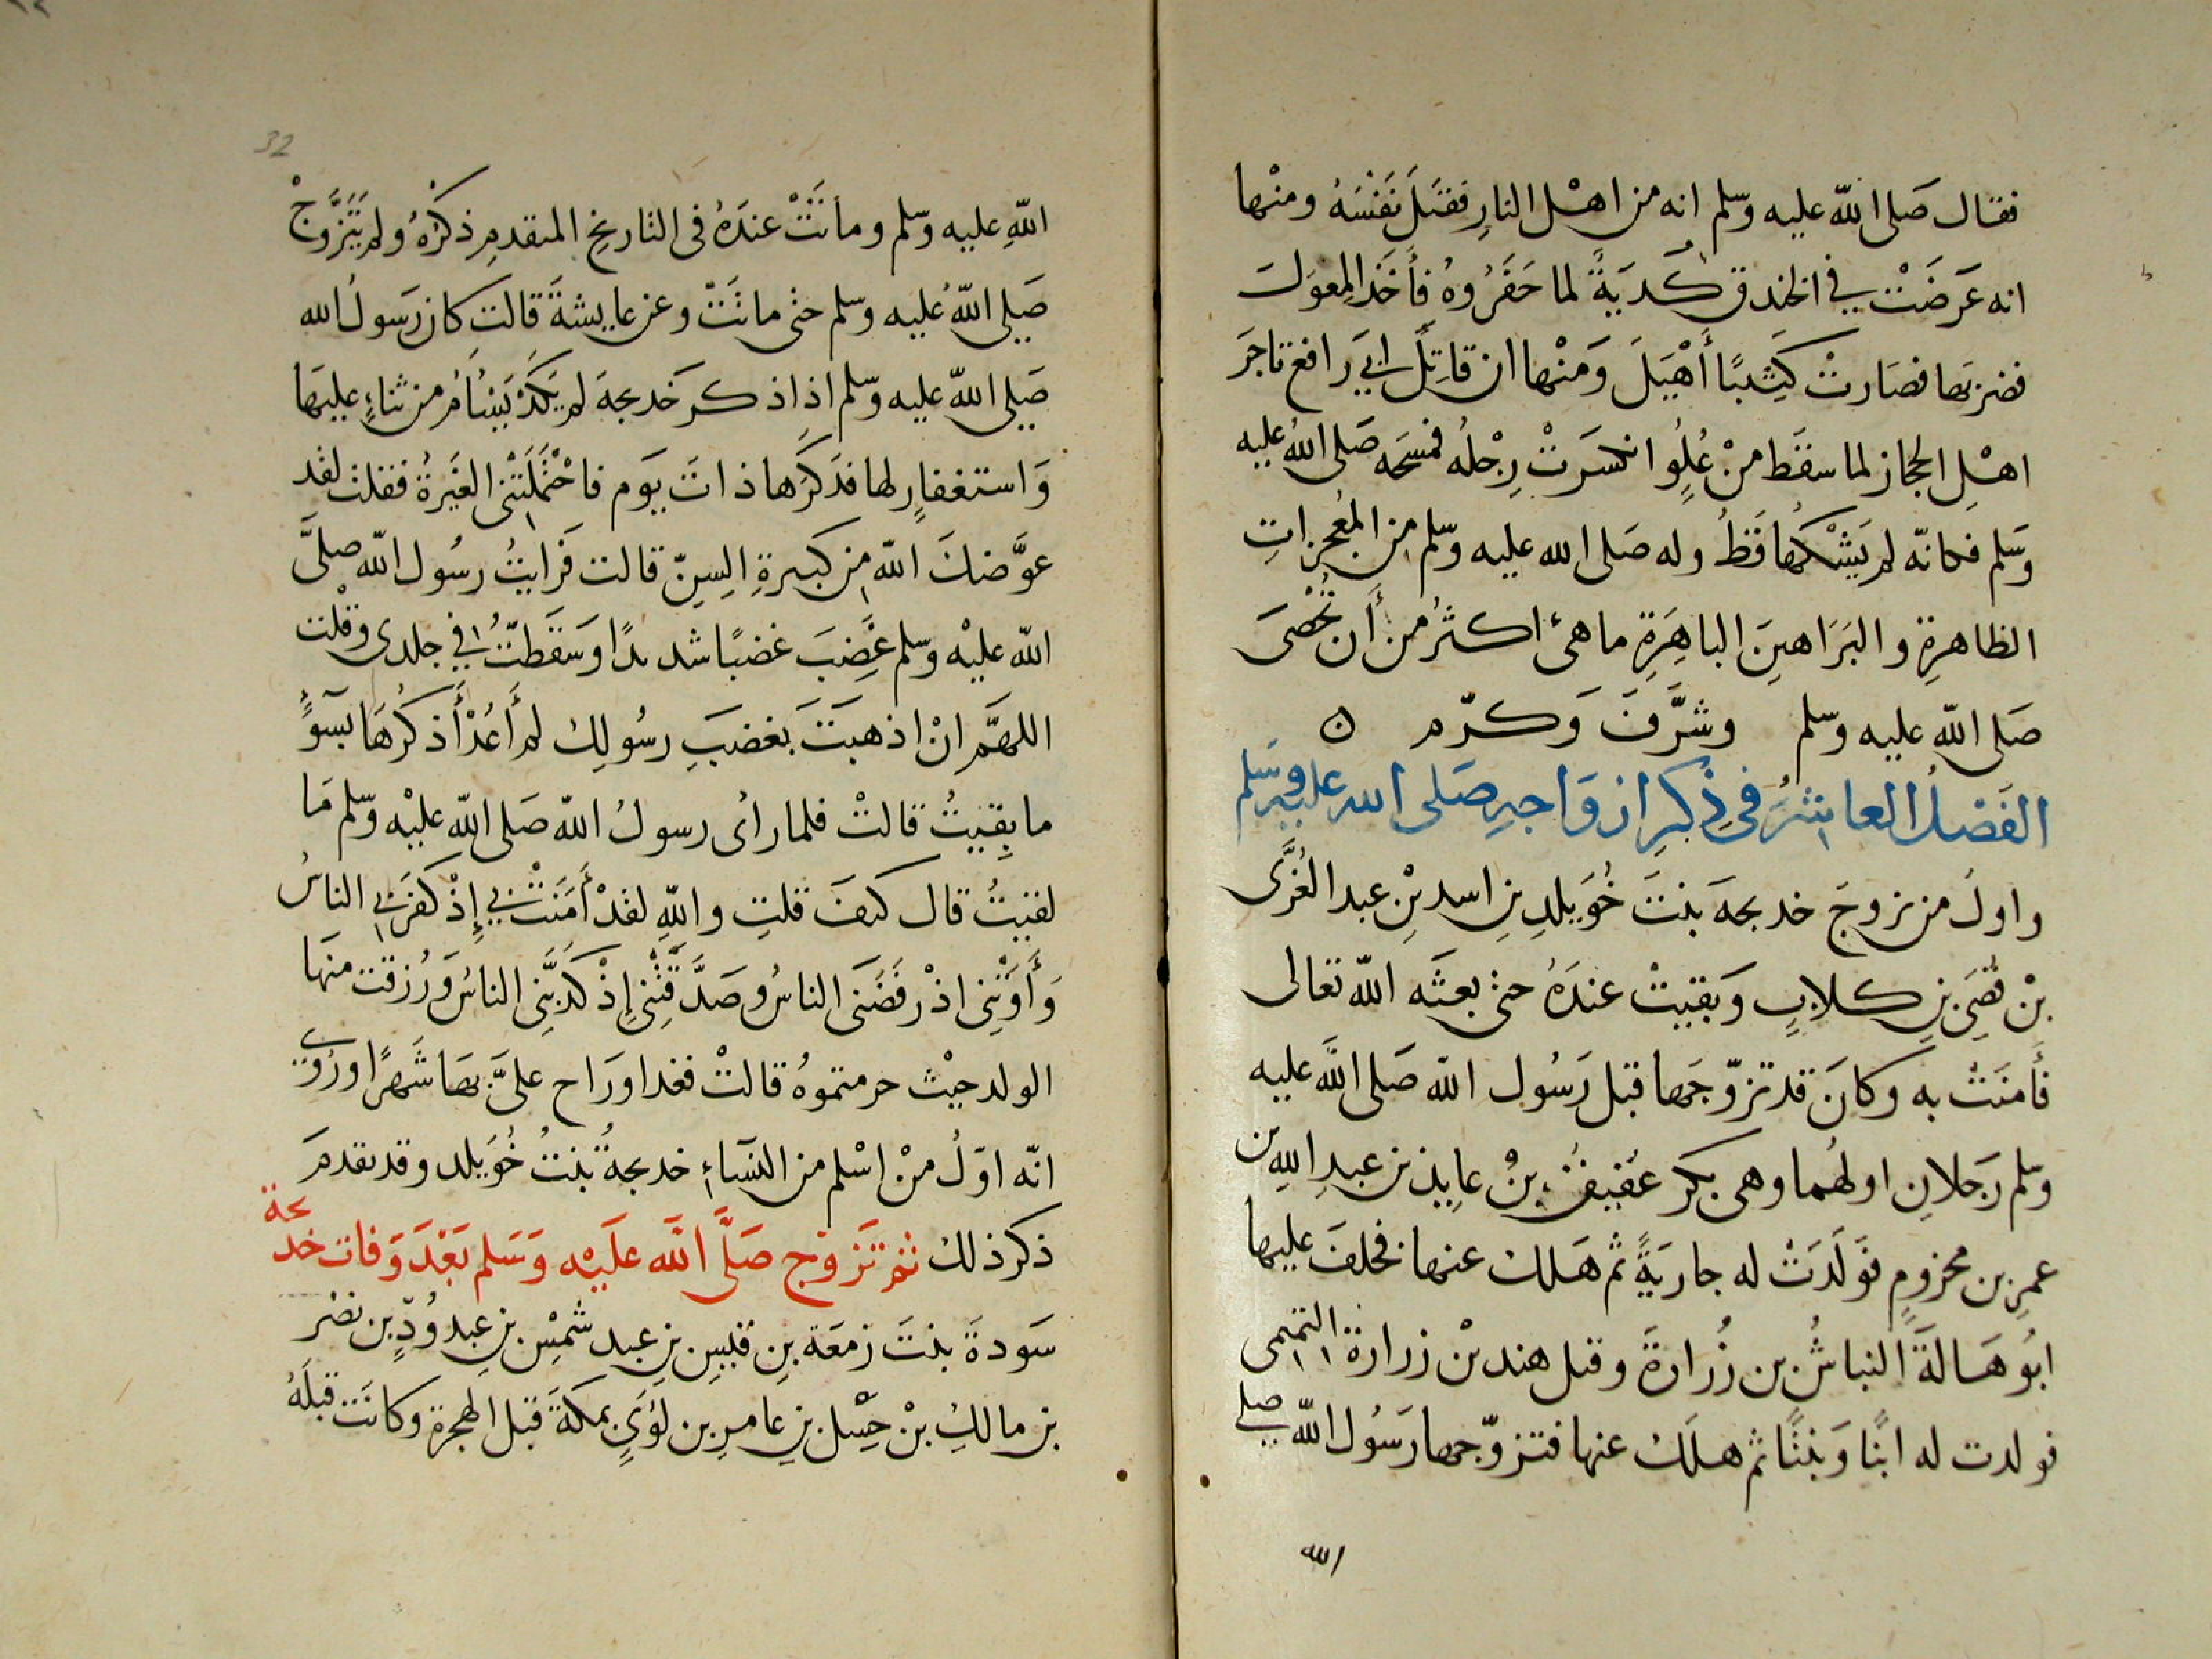 فقال صَلى الله عليه وسّلم انه من اهْل النارِ فقتَلَ نَفْسَهُ ومنْها
انه عَرضَتْ في الخندق كُدْيَةً لما حَفَرُوهُ فأَخَذَ المِعْوَلَ
فضربَها فصَارتْ كَثِيبًا أَهْيَلَ وَمنْها ان قاتِلَ ابي رافع تاجرَ
اهْلِ الحجاز لما سقَط منْ عُلِوٍ انكسَرتْ رِجْلُه فمسَحَه صَلى اللهُ عليه
وَسّلم فكانّه لم يَشْكُها قَطُ وله صَلى الله عليه وسّلم من المُعْجِزاتِ
الظاهرةِ والبَرَاهينَ الباهِرَةِ ما هي اكثرُ من أن تُحْصَى
صَلى اللّه عليه وسّلم وشَرَّفَ وَكرّم ن
الفَصْلُ العاشرُ في ذِكِر ازوَاجِه صَلى الله عليه وسَلم
واولُ من تزوجَ خديجةَ بنتَ خُوَيلِدِ بنِ اسد بْنِ عبد العُزَّى
بْنِ قُصَيِ بنِ كلابٍ وَبقيتْ عندَهُ حتى بعثَه اللّه تعالى
فأَمنَتْ به وكانَ قد تزوّجَها قبل رَسُول اللّه صَلى اللّه عليه
وسّلم رَجلانِ اولهُما وهى بكر عُقيفُ بنُ عايذ بن عبدِ اللهِ بن
عمرِ بن مخزومٍ فوَلَدَتْ له جاريَةً ثم هَلك عنها فخلفَ عليها
ابُو هَالةَ النباشُ بن زُرارةَ وقيل هند بْن زرارة التميمى
فولدت له ابنًا وَبنتًا ثم هلَك عنها فتزوّجها رَسُول اللّه صلى
الله
32
اللّهِ عليه وسّلم وماتَتْ عندَهُ فى التاريخِ المتقدمِ ذكرُهُ ولم يَتَزَوَّجْ
صَلى اللّهُ عليه وسّلم حتى ماتَتْ وعن عايشةَ قالتَ كان رَسولُ الله
صَلى اللّه عليه وسّلم اذا ذكر خَديجةَ لم يَكَدْ يَسْأَمُ من ثناءٍ عليهَا
وَاستغفارٍ لها فذَكَرَها ذاتَ يَوم فاحْتَمَلَتْنى الغَيرةُ فقلت لقد
عوَّضكَ اللّه من كبيرةِ السِنّ قالت فَرايتُ رسُول اللّه صلىَّ
اللّه عليْه وسّلم غَضِبَ غضبًا شديدًا وَسَقَطتُ في جلدى وقلت
اللهمَّ انْ اذهبَتَ بغضبَ رسُولِك لم أَعُدْ أَذكرُهَا بسوءٍ
ما بِقِيتُ قالتْ فلما رأى رسولُ اللّه صَلى اللّه عليْه وسّلم مَا
لقيتُ قال كيفَ قلتِ واللّهِ لقدْ أَمَنَتْ بي إِذْ كفرَ بي الناسُ
وَأَوَتْنِى اذْ رفَضَنَى الناسُ وصَدَّقَتْنِى إِذْ كذَّبَنِى الناسُ وَرُزقت منهَا
الولد حيْث حرمتموهُ قالتْ فغدا ورَاح علىَّ بهَا شَهرًا ورُوى
انّه اوّلُ منْ اسْلم من النسآءِ خديجةُ بنتُ خُوَيلد وقد تقدمَ
ذكر ذلك ثم تَزوّج صَلَّى اللَّه علَيْه وَسَلم بَعْدَ وَفات خديجة
سَودةَ بنتَ زمعَة بنِ قيسِ بنِ عبد شمْسِ بنِ عبد وُدِّ بن نصْر
بن مالكِ بْن حِسْل بنِ عامرِ بن لُؤيٍ بمكةَ قبل الهجرة وكانَت قبلَهُ